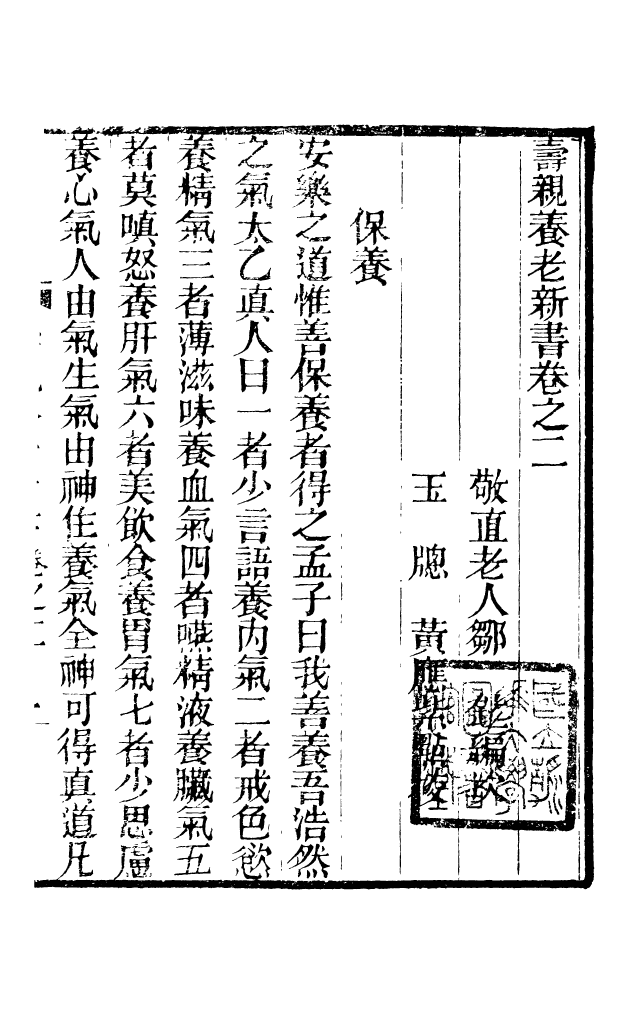 壽親養老新書卷之二
敬直老人鄒鉉編次
玉牕黃應紫點校
保養
安樂之道惟善保養者得之孟子曰我善養吾浩然
之氣太乙真人曰一者少言語養內氣二者戒色慾
養精氣三者薄滋味養血氣四者嚥精液養臟氣五
者莫嗔怒養肝氣六者美飲食養胃氣七者少思慮
養心氣人由氣生氣由神住養氣全神可得真道凡
卷之二
一